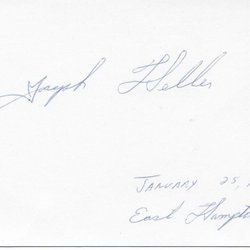 Joseph Heller
January 25, 
East Hampto